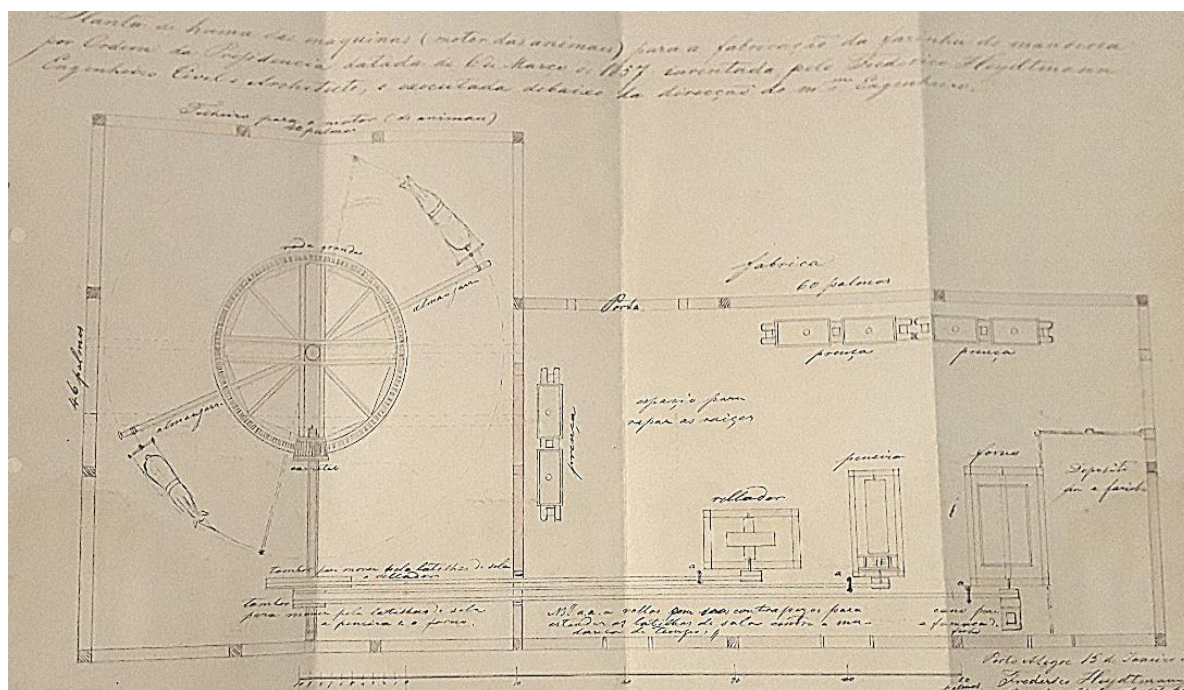 Planta de huma das maquinas (motor das animais) para a fabricação da farinha de mandioca
por Ordem da Presidencia datada de 6 de Março de 1857 inventada pelo Frederico Heydtmann
Engenheiro Civil e Architecto, e executada debaixo da direcção do mmo Engenheiro.
Telheiro para o motor (de animais)
40 palmos
roda grande
almanjarra
fabrica
60 palmos
Porta
46 palmos
prença
prença
almanjarra
espaço para
rapar as raizes
prença
peneira
forno
Deposito
pa a farinha
rellador
tambor para mover pela latilhas de sola
o rellador
a
a
a
tambor
para mover pela latilhas de sola
a peneira e o forno.
No a.a.a rollos com seus contrapezos para
estender as latilhas de sola contra a mu-
dança de tempo.
cano para
a fumaça do
forno
Porto Alegre 15 de Janeiro
Frederico Heydtmann
10
10
20
30
40
50
palmos